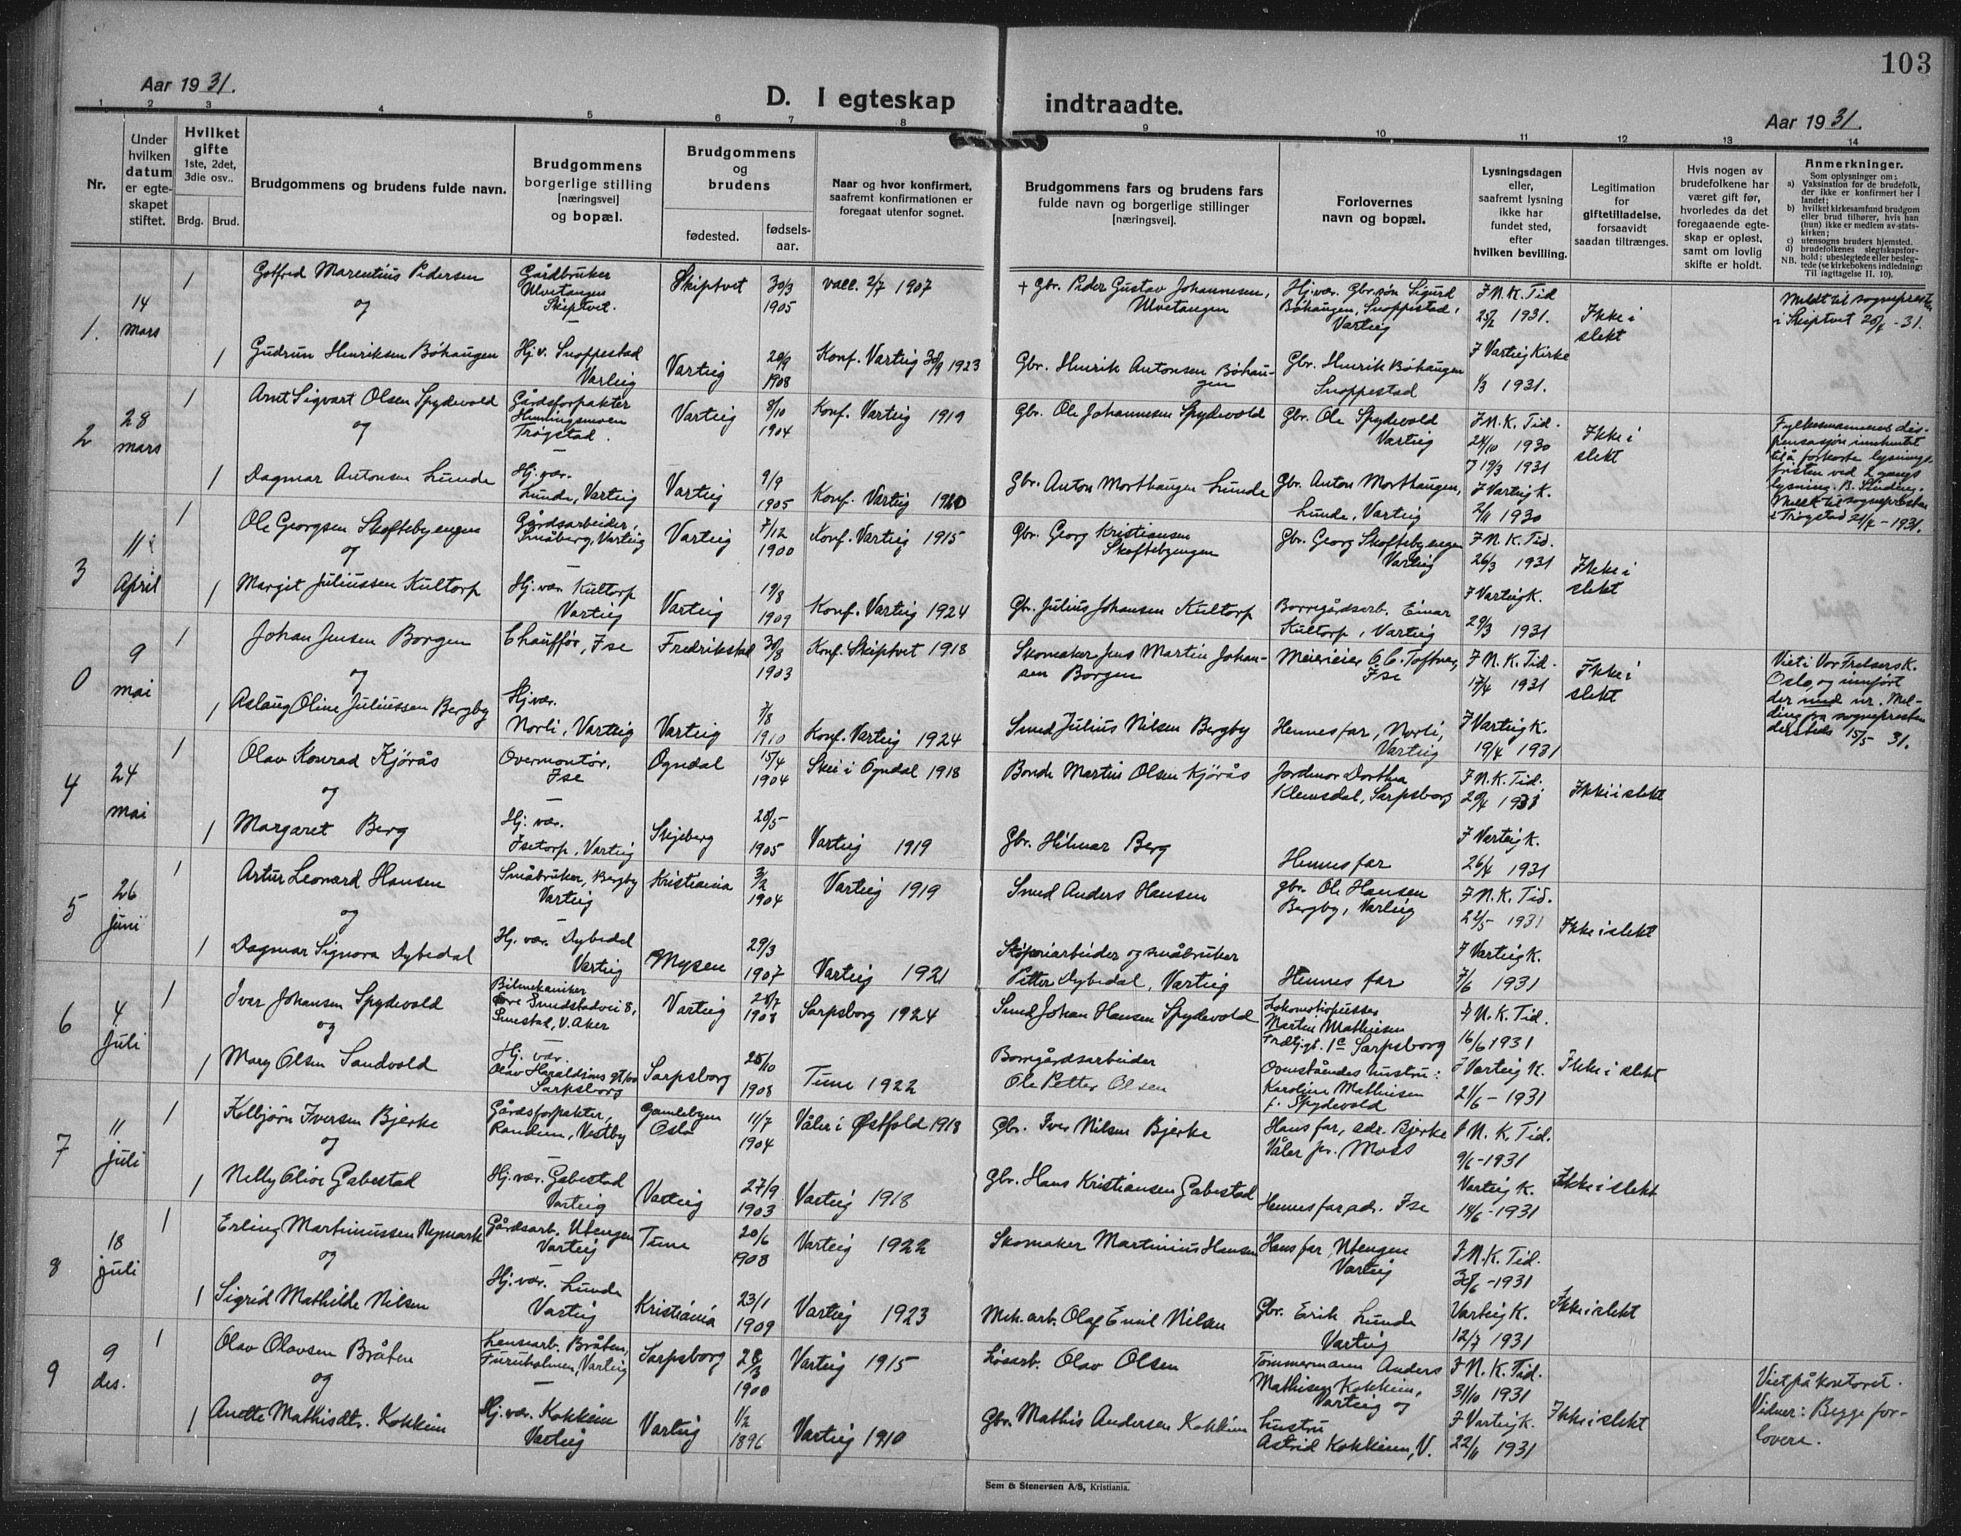 103
Aar 1931.
D. I egteskap indtraadte.
Aar 1931.
1 2 3 4 5 6 7 8 9 10 11 12 13 14
Nr.
Under hvilken datum er egteskapet stiftet.
Hvilket gifte 1ste, 2det, 3die osv..
Brdg. Brud.
Brudgommens og brudens fulde navn.
Brudgommens borgerlige stilling [næringsvei] og bopæl.
Brudgommens og brudens
fødested. fødsels-aar.
Naar og hvor konfirmert, saafremt konfirmationen er foregaat utenfor sognet.
Brudgommens fars og brudens fars fulde navn og borgerlige stillinger [næringsvei]
Forlovernes navn og bopæl.
Lysningsdagen eller, saafremt lysning ikke har fundet sted, efter hvilken bevilling.
Legitimation for giftetilladelse, forsaavidt saadan tiltrænges.
Hvis nogen av brudefolkene har været gift før, hvorledes da det foregaaende egteskap er opløst, samt om lovlig skifte er holdt.
Anmerkninger.
Som oplysninger om:
a) Vaksination for de brudefolk, der ikke er konfirmert her i landet;
b) hvilket kirkesamfund brudgom eller brud tilhører, hvis han (hun) ikke er medlem av statskirken;
c) utensogns bruders hjemsted.
d) brudefolkenes slegtskapsforhold; ubeslegtede eller beslegtede (se kirkebokens indledning: Til iagttagelse II. 10).
NB.
1. 14 mars
1 Gotfred Marentius Pedersen
og
Gårdbruker Ulvetangen Skiptvet.
Skiptvet 30/3 1905
vacc. 2/7 1907
+ Gbr. Peder Gustav Johannesen, Ulvetangen
Hj.vær. Gbr.søn Sigurd Bøhaugen, Snoppestad, Varteig
I N.K. Tid 25/2 1931.
Ikke i slekt
Meldt til sognepresten i Skiptvet 28/4 - 31.
1 Gudrun Henriksen Bøhaugen
Hj.v. Snoppestad Varteig
Varteig 20/9 1908
Konf. Varteig 30/9 1923
Gbr. Henrik Antonsen Bøhaugen
Gbr. Henrik Bøhaugen Snoppestad
I Varteig Kirke 1/3 1931.
2 28 mars
1 Arnt Sigvart Olsen Spydevold
og
Gårdsforpakter Trøgstad.
Varteig 8/10 1904
Konf. Varteig 1919
Gbr. Ole Johannesen Spydevold
Gbr. Ole Spydevold Varteig
I N.K. Tid. 24/10 1930
7 19/3 1931
Ikke i slekt
Fylkesmannens dispensasjon innhentet til å forkorte lysningsfristen ved 2 gangs lysning. Meldt til sognepresten i Trøgstad 21/4 - 1931.
1 Dagmar Antonsen Lunde
Hj.vær. Lunde, Varteig
Varteig 9/9 1905
Konf. Varteig 1920
Gbr. Anton Morthaugen Lunde
Gbr. Anton Morthaugen, Lunde, Varteig
I Varteig K. 2/11 1930
3 11 April
1 Ole Georgsen Skoftebyengen
og
Gårdsarbeider, Småberg, Varteig
Varteig 7/12 1900
Konf. Varteig 1915
Gbr. Georg Kristiansen Skoftebyengen
Gbr. Georg Skoftebyengen Varteig
I N.K. Tid. 26/3 1931
Ikke i slekt
1 Margit Juliussen Kultorp
Hj.vær. Kultorp Varteig
Varteig 19/8 1909
Konf. Varteig 1924
Gbr. Julius Johansen Kultorp
Borregårdsarb. Einar Kultorp, Varteig
I Varteig K. 29/3 1931
0 9 mai
1 Johan Jensen Borgen
og
Chauffør, Ise
Fredrikstad 30/8 1903
Konf. Skiptvet 1918
Skomaker Jens Martin Johansen Borgen
Meierieier O.C. Toftnes, Ise
I N.K. Tid. 17/4 1931
Ikke i slekt
Viet i Vor Frelsers K. Oslo, og innført der med nr. Melding fra sognepresten dersteds 15/5 31.
1 Aslaug Oline Juliussen Bergby
Hj.vær. Norli, Varteig
Varteig 7/8 1910
Konf. Varteig 1924
Smed Julius Nilsen Bergby
Hennes far, Norli, Varteig
I Varteig K. 19/4 1931
4 24 mai
1 Olav Konrad Kjörås
og
Overmontør, Ise
Ogndal 15/4 1904
Skei i Ogndal 1918
Bonde Martin Olsen Kjörås
Jordmor Dorthea Klemsdal, Sarpsborg
I N.K. Tid. 20/4 1931
Ikke i slekt
1 Margaret Berg
Hj. vær. Isetorp, Varteig
Skjeberg 28/5 1905
Varteig 1919
Gbr. Hilmar Berg
Hennes far
I Varteig K. 26/4 1931
5 26 juni
1 Artur Leonard Hansen
og
Småbruker, Bergby Varteig
Kristiania 3/2 1904
Varteig 1919
Smed Anders Hansen
gbr. Ole Hansen Bergby, Varteig
I N.K. Tid. 22/5 1931
Ikke i slekt
1 Dagmar Signora Dybedal
Hj. vær. Dybedal Varteig
Mysen 29/3 1907
Varteig 1921
Støperiarbeider og småbruker Petter Dybedal, Varteig
Hennes far
I Varteig K. 7/6 1931
6 4 Juli
1 Ivar Johansen Spydevold
og
Bilmekaniker Smestad, V. Aker
Varteig 28/7 1903
Sarpsborg 1924
Smed Johan Hansen Spydevold
Lokomotivpusser Martin Mathisen Sarpsborg
I N.K. Tid. 16/6 1931
Ikke i slekt
1 Mary Olsen Sandvold
Hj. vær. Olav Haraldsons gt. Sarpsborg
Sarpsborg 25/10 1908
Tune 1922
Borrgårdsarbeider Ole Petter Olsen
Ovenståendes hustru: Karoline Mathisen f. Spydevold
I Varteig K. 21/6 - 1931
7 11 juli
1 Kolbjørn Iversen Bjerke
og
Gårdsforpakter, Randem, Vestby
Gamlebyen Oslo 11/7 1904
Våler i Østfold 1918
Gbr. Iver Nilsen Bjerke
Hans far, adr. Bjerke Våler pr. Moss
I N. K. Tid. 9/6 - 1931
Ikke i slekt
1 Nelly Olive Gabestad
Hj. vær. Gabestad Varteig
Varteig 27/9 1903
Varteig 1918
Gbr. Hans Kristiansen Gabestad
Hennes far, adr. Ise
Varteig K. 14/6 - 1931
8 18 juli
1 Erling Martinussen Nymark
og
Gårdsarb. Utengen Varteig
Tune 20/6 1908
Varteig 1922
Skomaker Martinius Hansen
Hans far, Utengen Varteig
I N.K. Tid. 30/6 - 1931
Ikke i slekt
1 Sigrid Mathilde Nilsen
Hj. vær. Lunde Varteig
Kristiania 23/1 1909
Varteig 1923
Mek. arb. Olaf Emil Nilsen
Gbr. Erik Lunde Varteig
Varteig K. 12/7 1931
9 9 des.
1 Olav Olavsen Bråten
og
Lensearb. Bråten, Furuholmen, Varteig
Sarpsborg 28/3 1900
Varteig 1915
Løsarb. Olav Olsen
Tømmermann Anders Mathisen Kokkim, Varteig og
I N.K. Tid. 31/10 1931
Ikke i slekt
Viet på kontoret. Vidner: Begge forlovere.
1 Anette Mathisdtr. Kokkim
Hj. vær. Kokkim Varteig
Varteig 1/2 1896
Varteig 1910
Gbr. Mathis Andersen Kokkim
hustru Astrid Kokkim, V.
I Varteig K. 22/11 1931
Sem & Stenersen A/S, Kristiania.